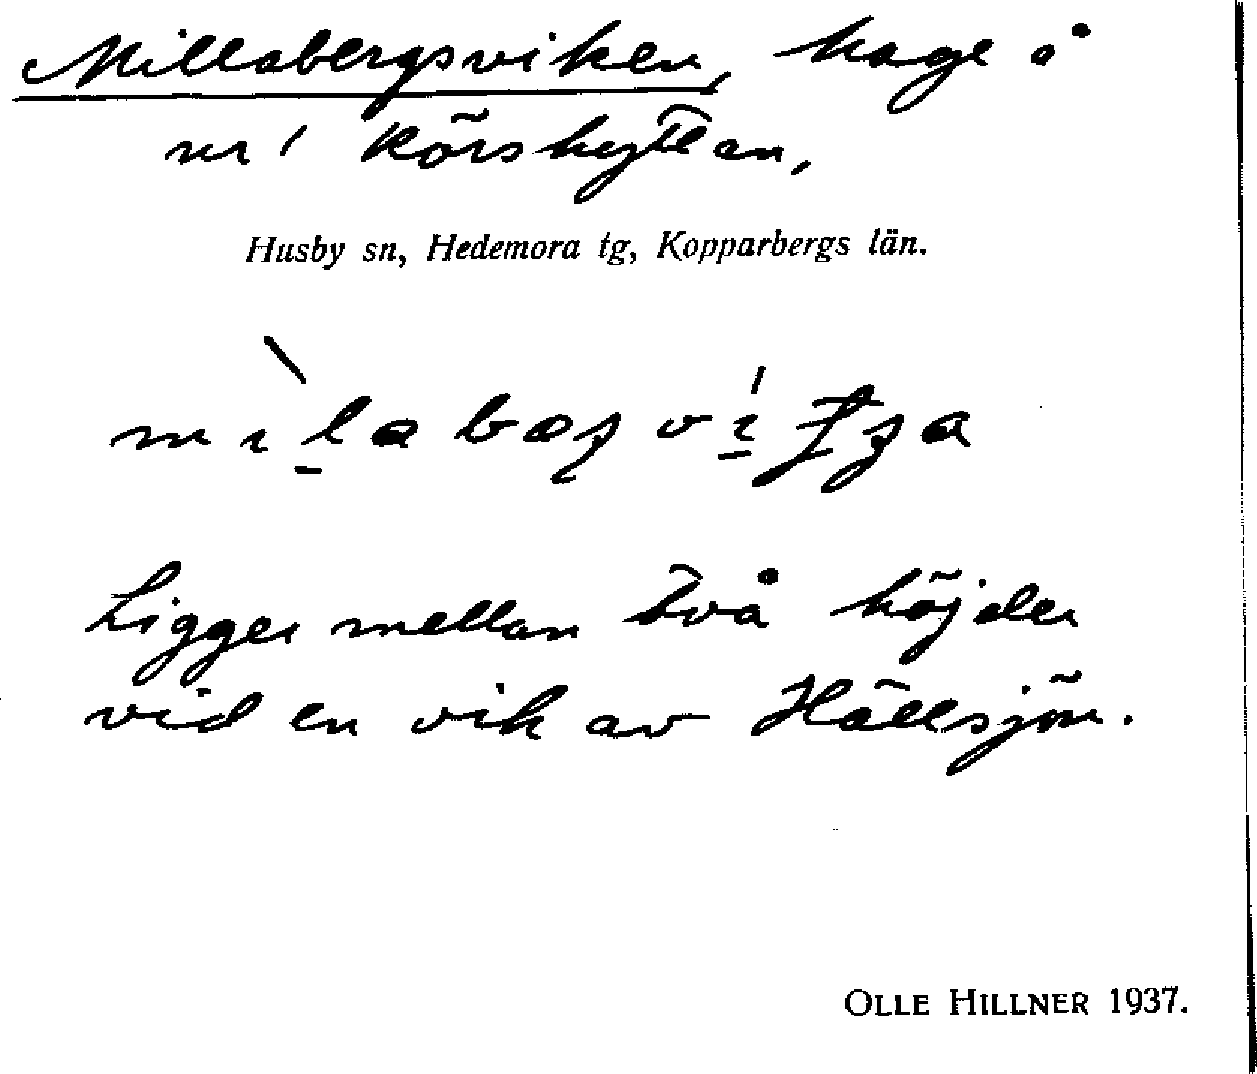 Millabergsviken, hage å
nr 1 Körshyttan,
Husby sn, Hedemora tg, Kopparbergs län.
Ligger mellan två höjder
vid en vik av Hällsjön.
OLLE HILLNER 1937.